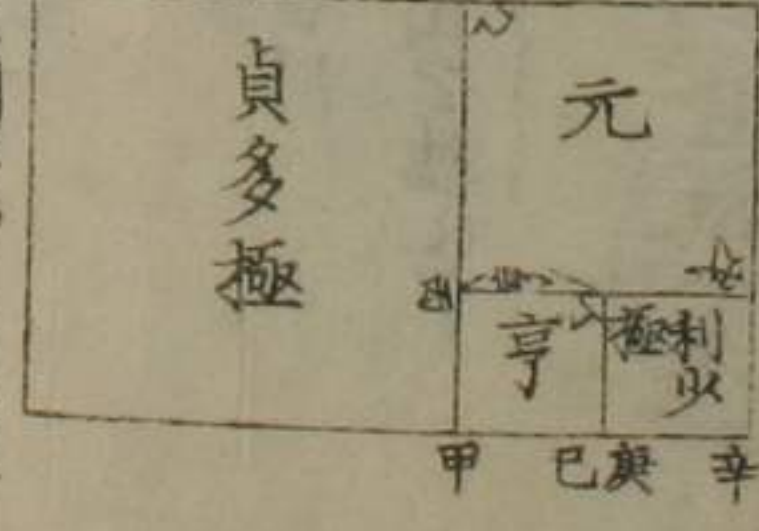 貞多極
元
亨
利少
極
甲
巳庚
辛